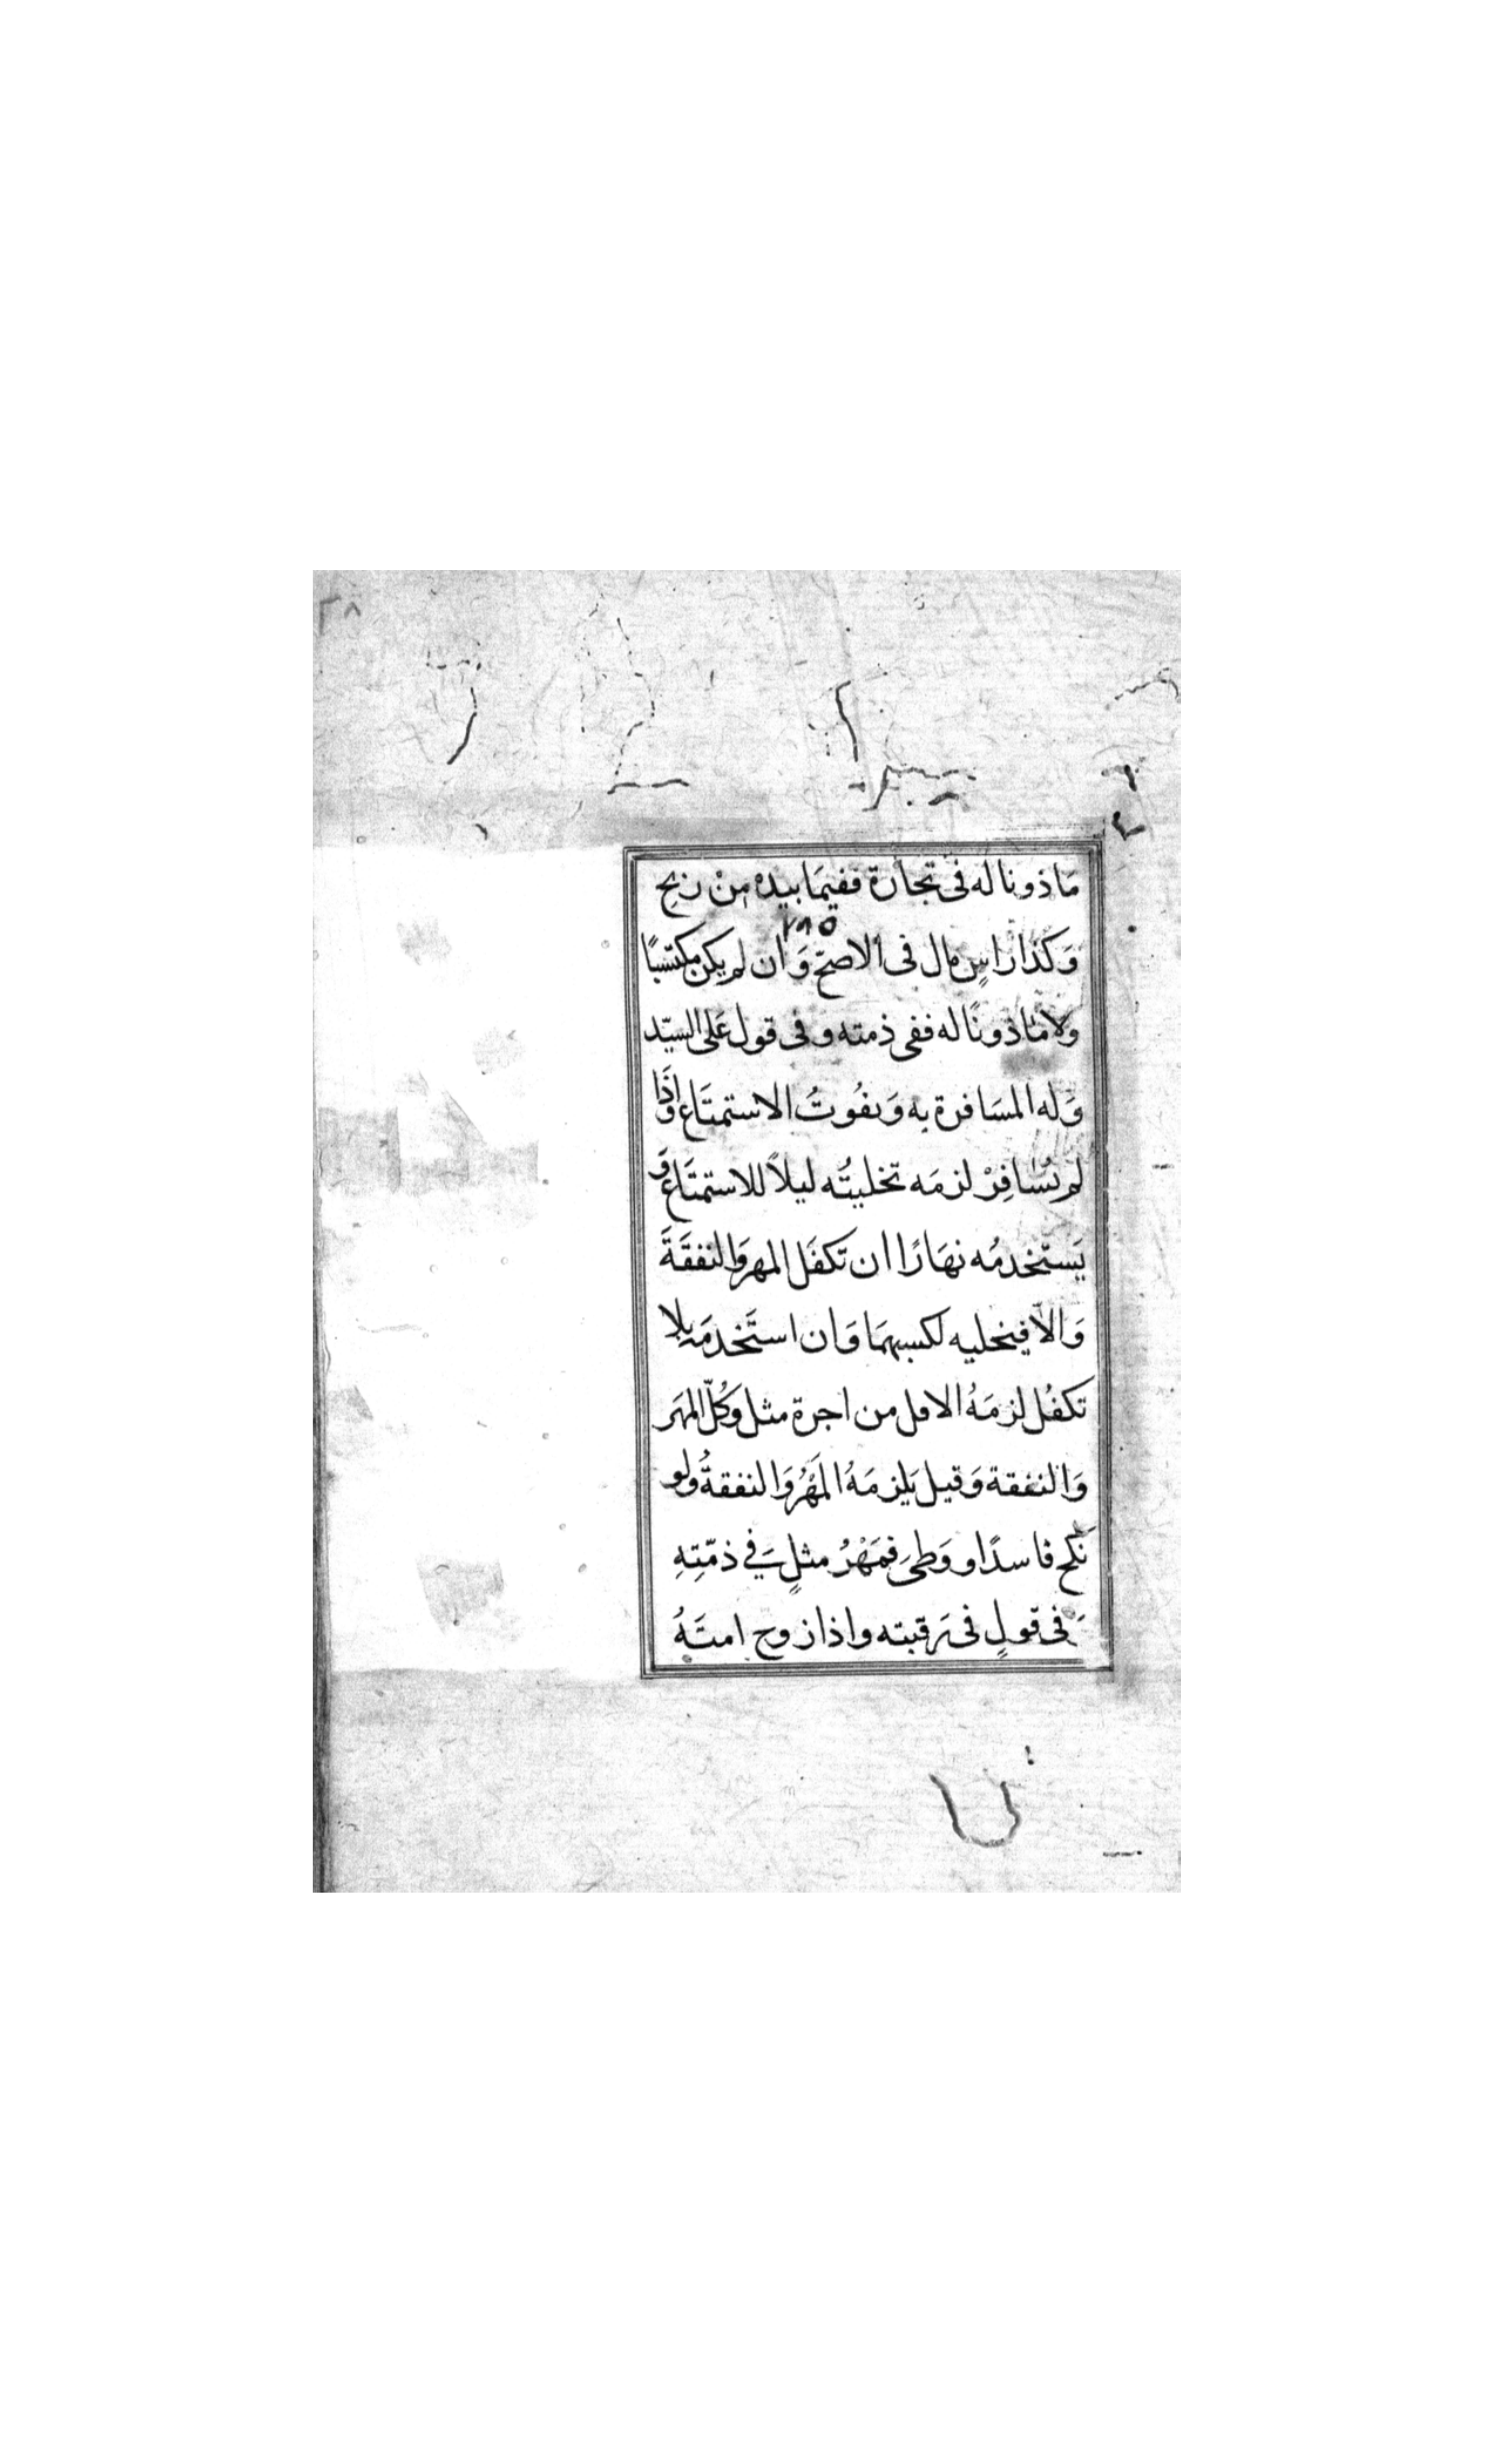 ٢٨
مَاذونا له فى تجارة ففيمَا بيدهْ مِنْ ربحٍ
٢٨٥
وَكذا راسٍ مال فى الاصحّ وَان لم يكن مكتسبًا
ولا مَاذونًا له ففى ذمته و فى قول عَلى السيّد
وَله المسَافرة به وَيفُوتُ الاستمتَاع وَاذَا
لم يُسَافِرْ لزمَه تخليتُه ليلاً للاستمتَاع وَ
يَستْخدمُه نهَارًا ان تَكفَل المهر وَالنفقَةَ
وَالاّ فيخليه لكسبهمَا وَان استَخدمَه بلا
تكفُل لزمَهُ الاقل من اجرة مثل وَكُلّ المهَر
وَالنفقة وَقيل يَلزمَهُ المَهْرُ وَالنفقةُ ولو
نَكح فاسدًا و وَطئَ فمَهْرُ مثلٍ فِي ذمّتِهِ
وَفى قولٍ فى رقبته واذا زوج امتَهُ